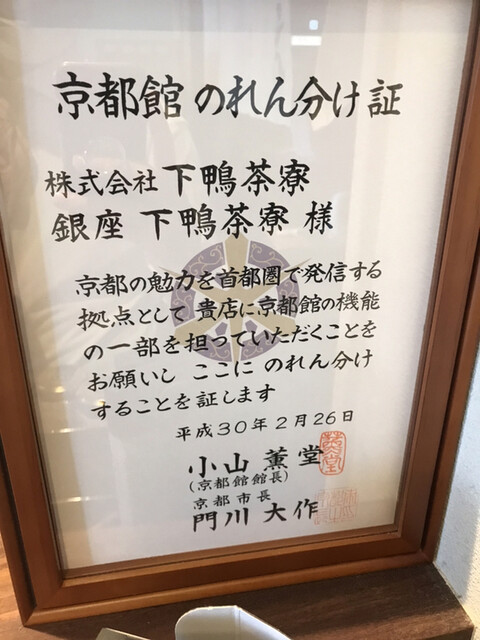 京都館 のれん分け 証
株式会社 下鴨茶寮
銀座 下鴨茶寮 様
京都の魅力を首都圏で発信する
拠点として 貴店に京都館の機能
の一部を担っていただくことを
お願いし ここに のれん分け
することを証します
平成30年2月26日
小山 薫堂
(京都館館長)
京都市長
門川 大作